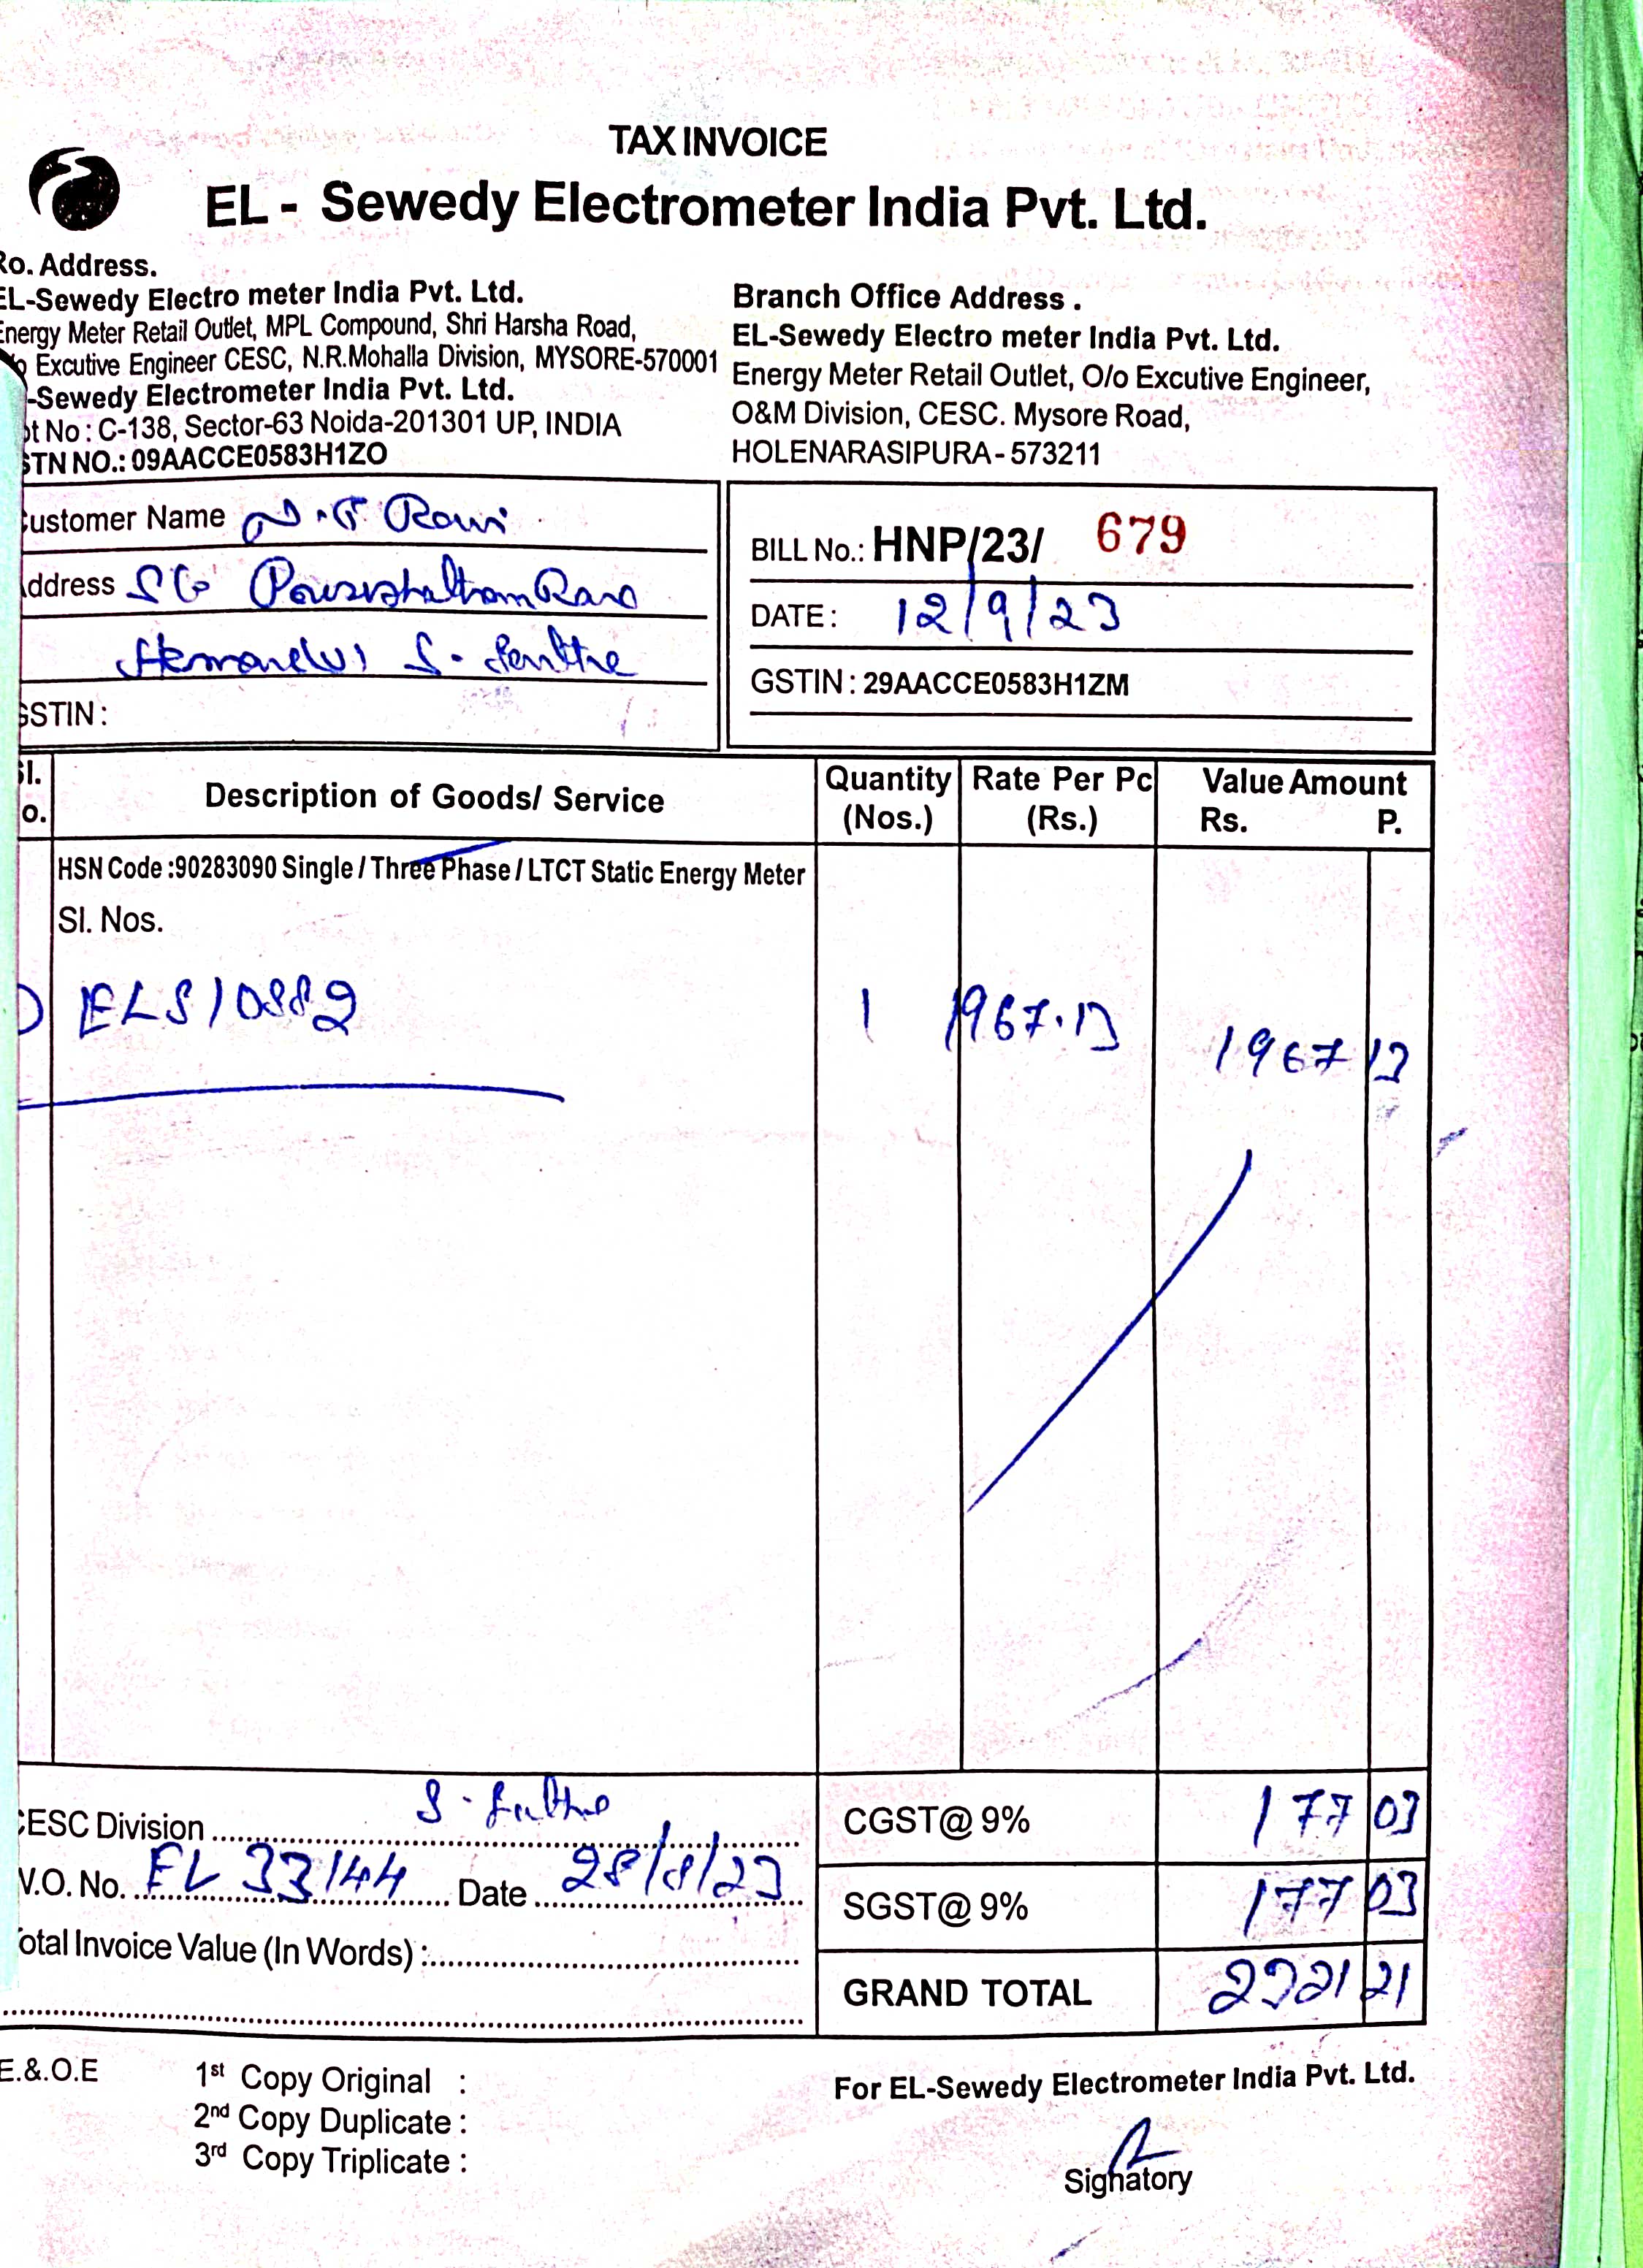 TAX INVOICE
EL - Sewedy Electrometer India Pvt. Ltd.
Ro. Address.
EL-Sewedy Electro meter India Pvt. Ltd.
Energy Meter Retail Outlet, MPL Compound, Shri Harsha Road,
Excutive Engineer CESC, N.R.Mohalla Division, MYSORE-570001
-Sewedy Electrometer India Pvt. Ltd.
ot No : C-138, Sector-63 Noida-201301 UP, INDIA
STN NO.: 09AACCE0583H1ZO
Branch Office Address .
EL-Sewedy Electro meter India Pvt. Ltd.
Energy Meter Retail Outlet, O/o Excutive Engineer,
O&M Division, CESC. Mysore Road,
HOLENARASIPURA - 573211
Customer Name Ravi
Address S/o
GSTIN :
BILL No.: HNP/23/ 679
DATE : 12/9/23
GSTIN : 29AACCE0583H1ZM
Sl. o. Description of Goods/ Service Quantity (Nos.) Rate Per Pc (Rs.) Value Amount Rs. P.
HSN Code :90283090 Single / Three Phase / LTCT Static Energy Meter
Sl. Nos.
ELS10882 1 1967.13 1967 13
CESC Division
W.O. No. EL 33144 Date 28/8/23
Total Invoice Value (In Words) :
CGST@ 9% 177 03
SGST@ 9% 177 03
GRAND TOTAL 2321 21
E.&.O.E
1st Copy Original :
2nd Copy Duplicate :
3rd Copy Triplicate :
For EL-Sewedy Electrometer India Pvt. Ltd.
Signatory